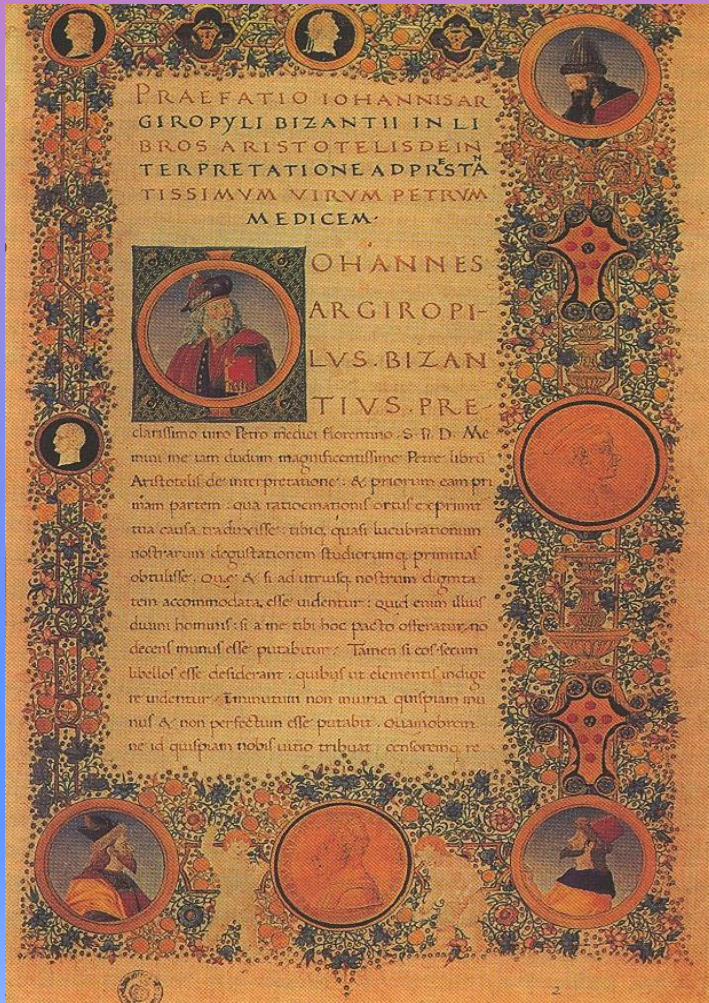 PRAEFATIO IOHANNIS AR
GIROPYLI BIZANTII IN LI
BROS ARISTOTELIS DE IN
TERPRETATIONE AD PRESTĀ
TISSIMVM VIRVM PETRVM
MEDICEM·
OHANNES
ARGIROPI-
LVS. BIZAN
TIVS. PRE-
clarissimo uiro Petro medici florentino. S. P. D. Me
mini me iam dudum magnificentissime Petre librũ
Aristotelis de interpretatione: & priorum eam pri
mam partem: qua ratiocinationis ortus exprimit͛
tua causa traduxisse: tibiq; quasi lucubrationum
nostrarum degustationem studiorumq; primitias
obtulisse. Quę & si ad utriusq; nostrum dignita
tem accommodata esse uidentur: quid enim illius
diuini hominis: si a me tibi hoc pacto offeratur, nõ
decens munus esse putabitur? Tamen si eos secum
libellos esse desiderant: quibus ut elementis indige
re uidentur: Iminutum non iniuria quispiam mu
nus & non perfectum esse putabit. Quamobrem
ne id quispiam nobis uitio tribuat: censoremq; re
2